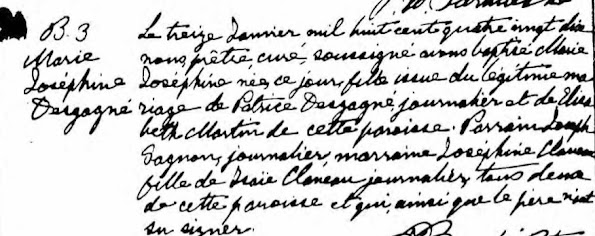 B. 3
Marie
Joséphine
Desgagné
Le treize Janvier mil huit cent quatre vingt dix
nous, prêtre, curé, soussigné avons baptisé Marie
Joséphine née, ce jour, fille issue du légitime ma
riage de Patrice Desgagné, journalier et de Elisa
beth Martin de cette paroisse. Parrain Joseph
Gagnon, journalier, marraine Joséphine Claveau
fille de Isaïe Claveau journalier, tous deux
de cette paroisse et qui, ainsi que le père n'ont
su signer.